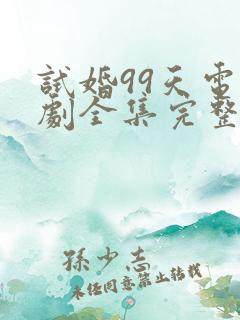 試婚99天電
劇全集完整
孫少志
未經同意禁止轉載